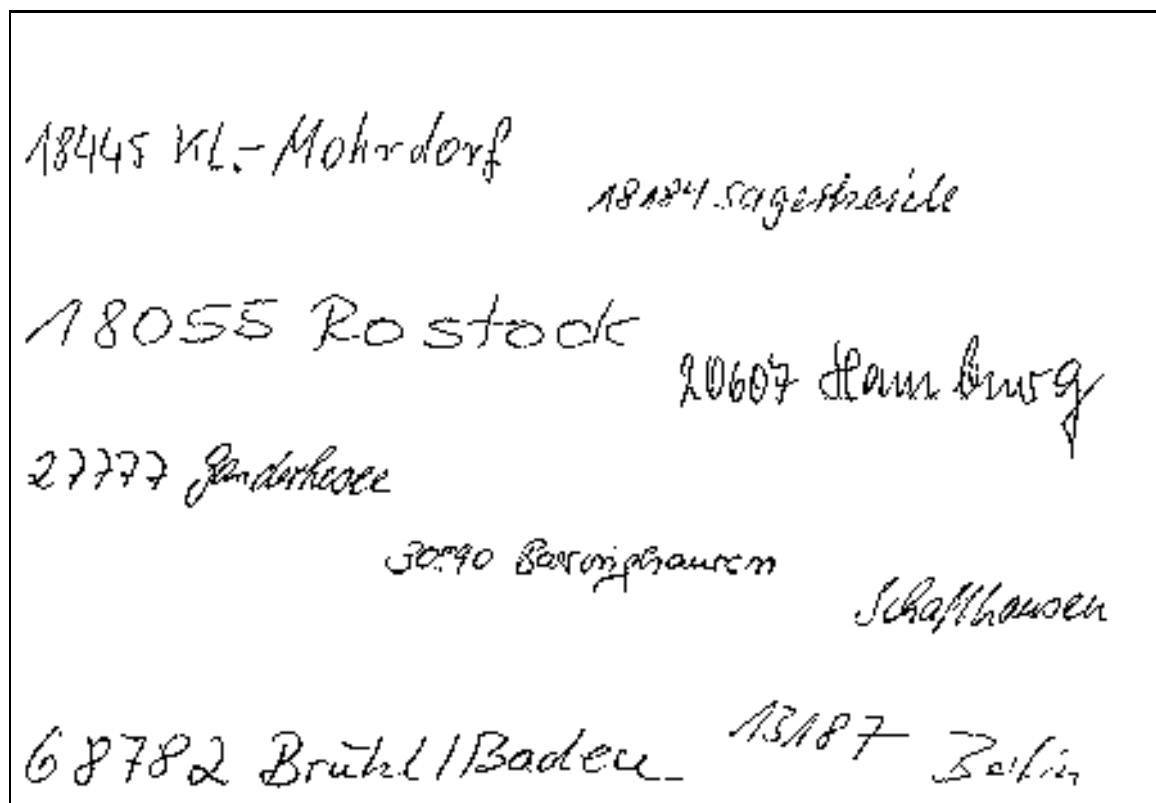 18445 Kl.-Mohrdorf
18184 Sagerheide
18055 Rostock
20607 Hamburg
27777 Ganderkesee
30890 Barsinghausen
Schaffhausen
68782 Brühl/Baden
13187 Berlin